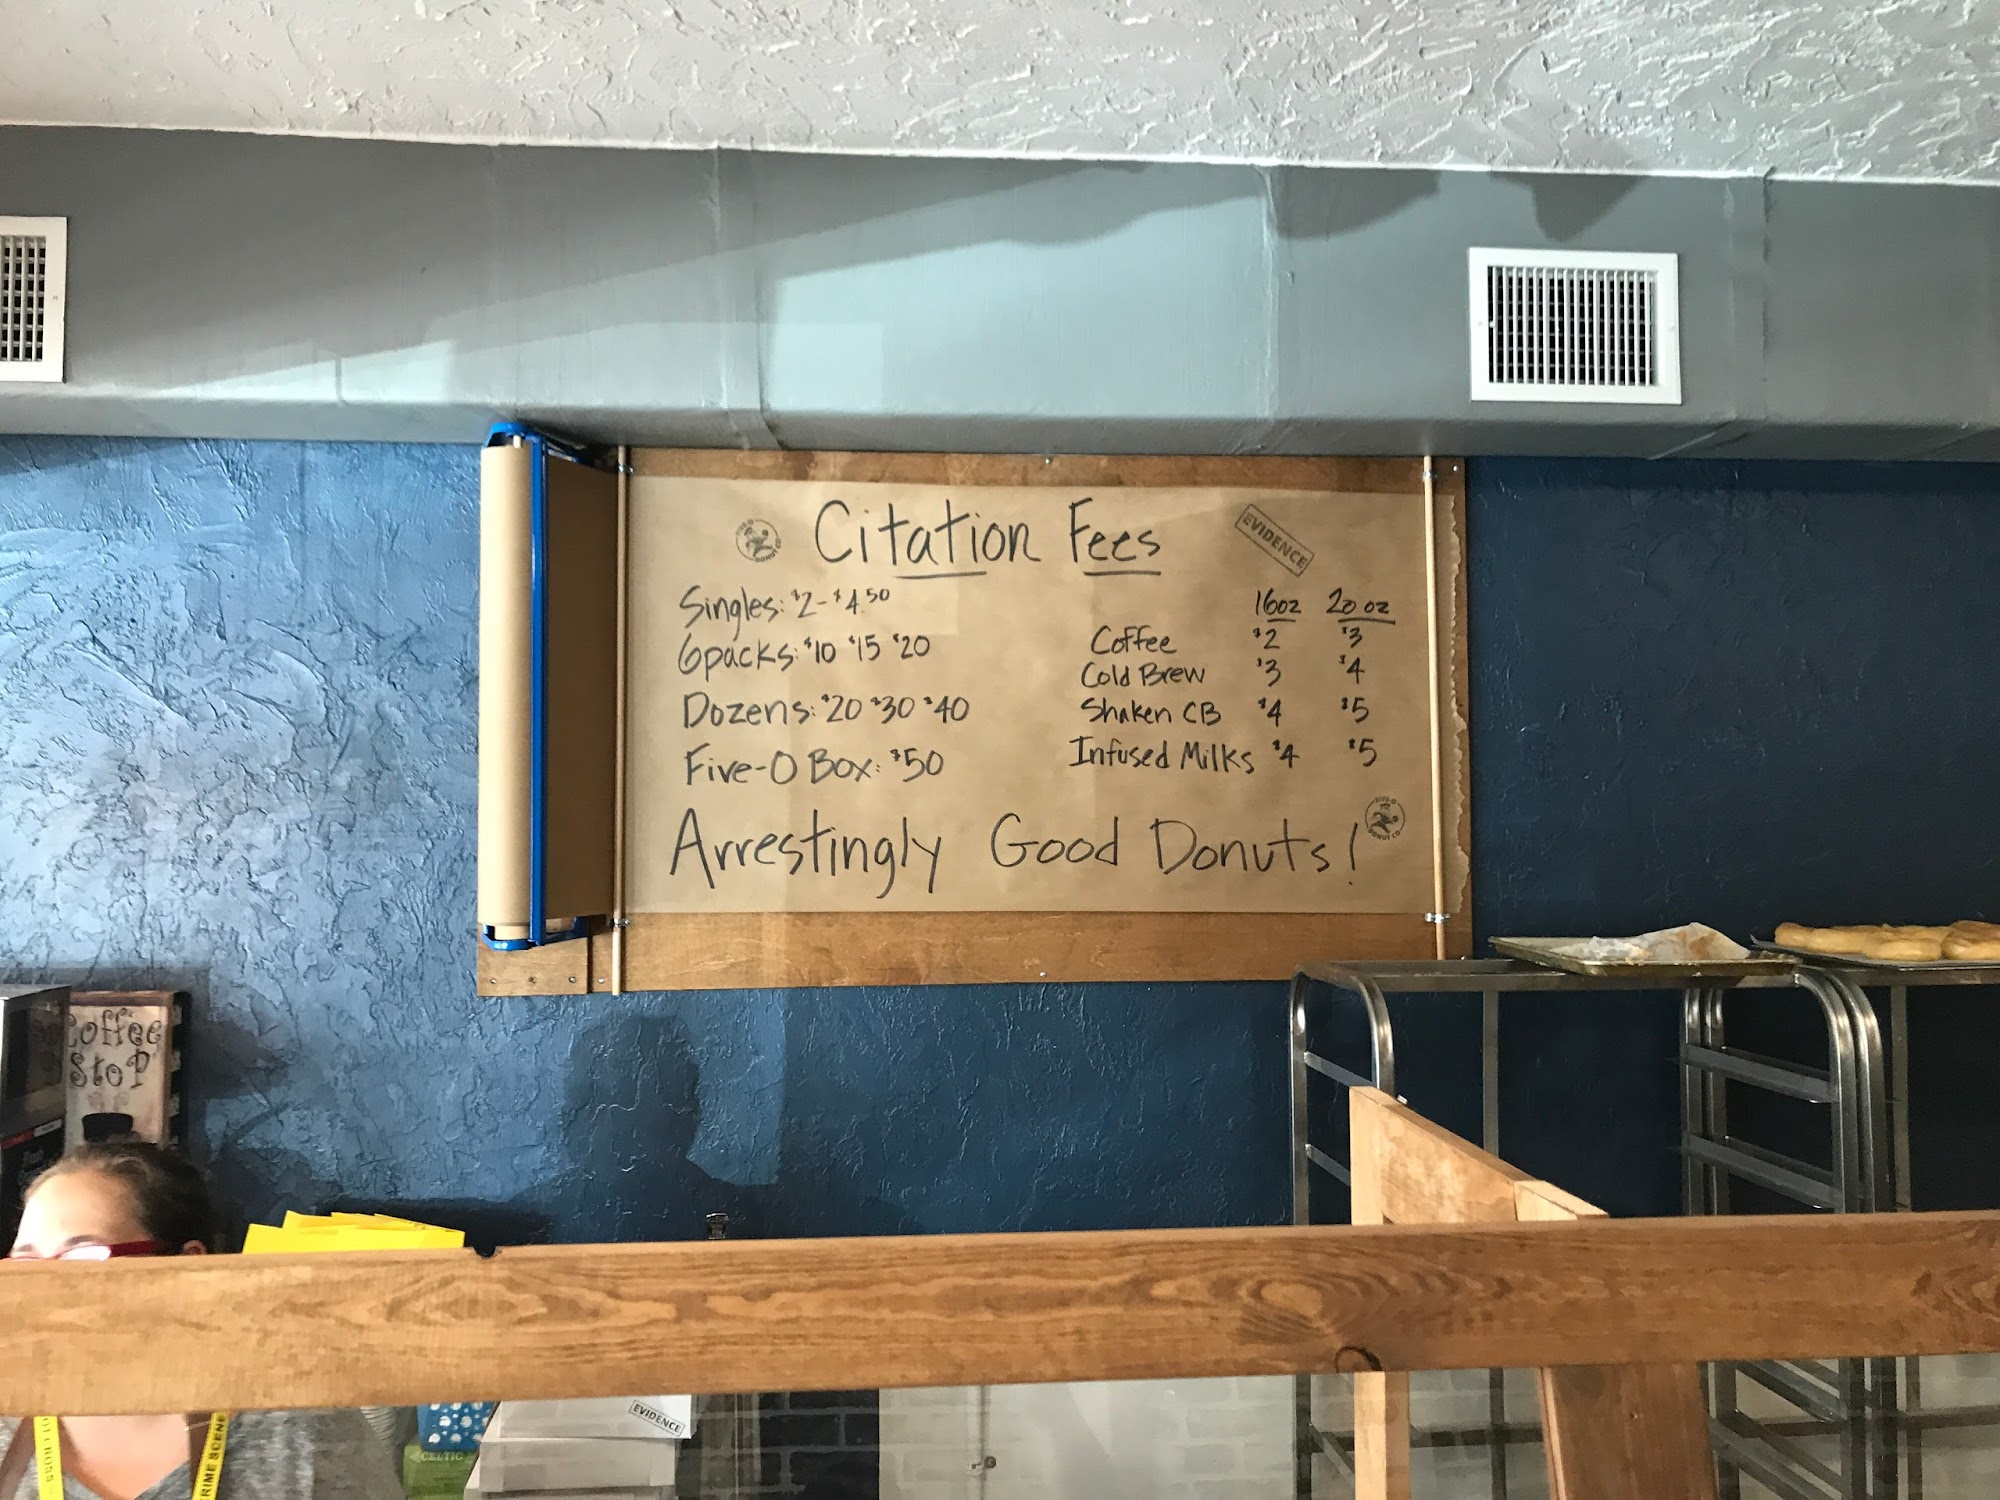 FIVE-O
DONUT CO
Citation Fees
EVIDENCE
Singles: $2-$4.50
6packs: $10 $15 $20
Dozens: $20 $30 $40
Five-O Box: $50
16oz 20 oz
Coffee $2 $3
Cold Brew $3 $4
Shaken CB $4 $5
Infused Milks $4 $5
Arrestingly Good Donuts!
FIVE-O
DONUT CO
Coffee
Stop
EVIDENCE
CELTIC
CROSS
CRIME SCENE